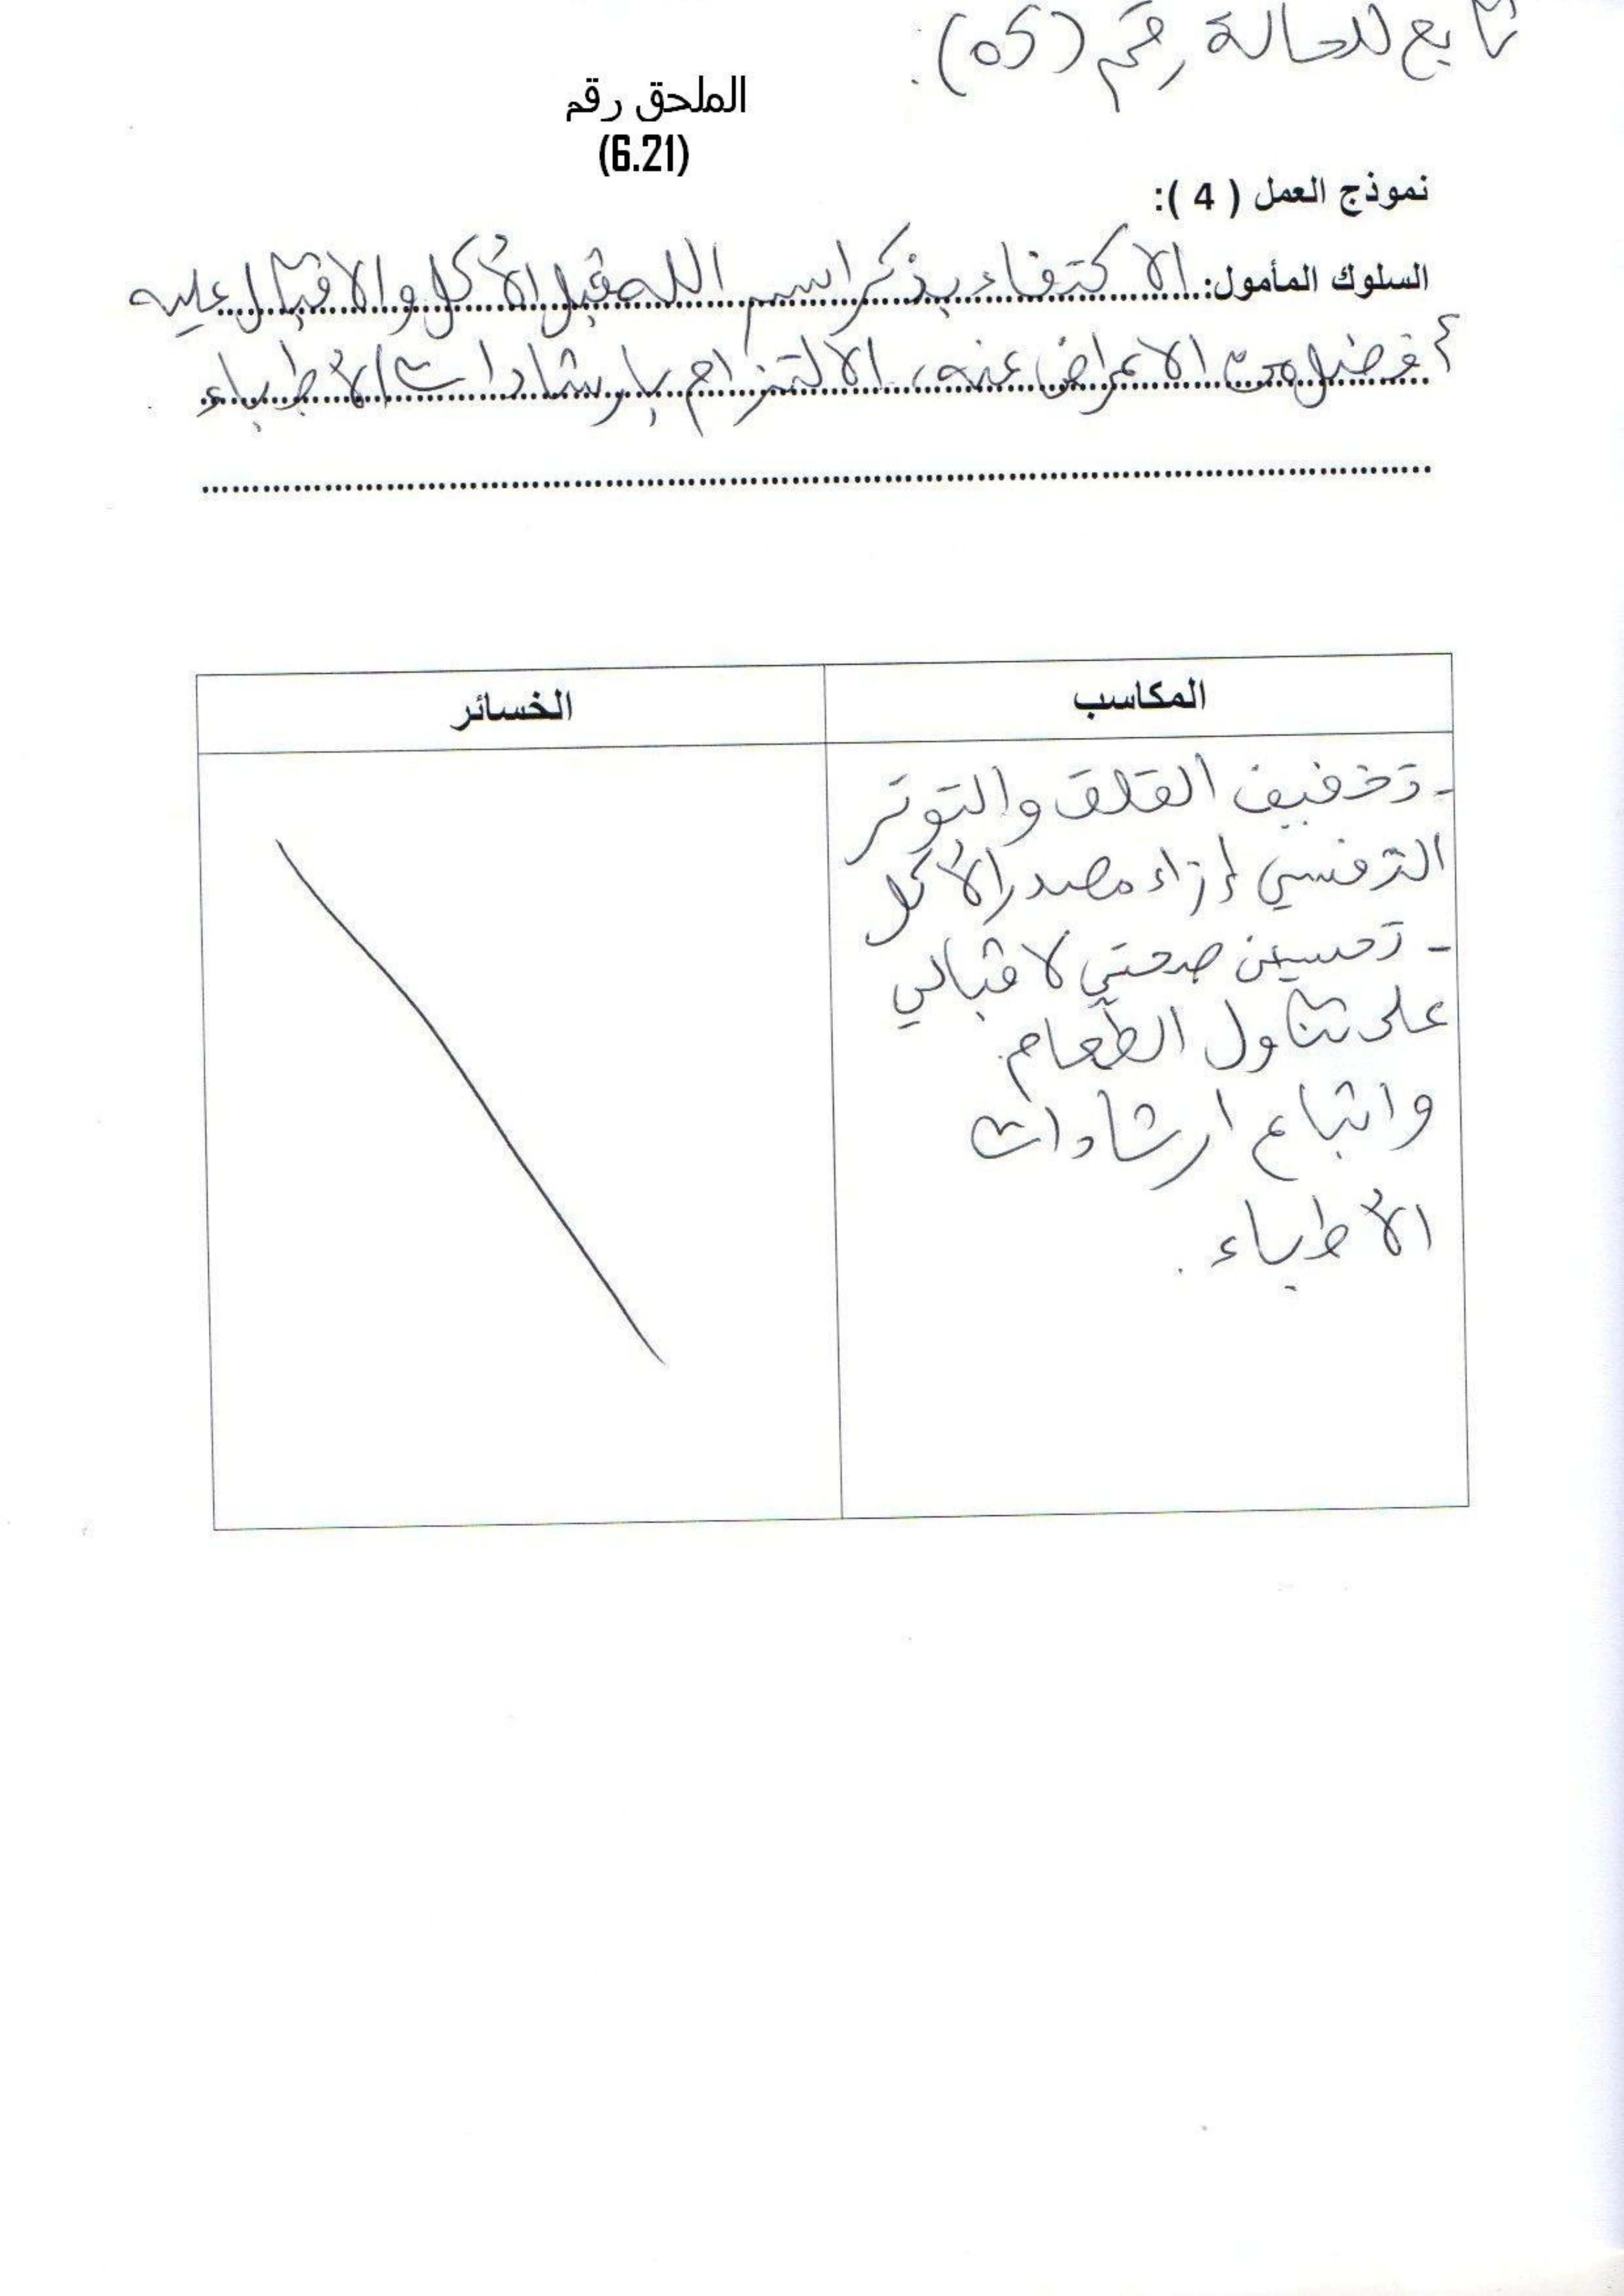 تابع للحالة رقم (05).
الملحق رقم
(6.21)
نموذج العمل ( 4 ):
السلوك المأمول: الاكتفاء بذكر اسم الله قبل الأكل والاقبال عليه
أفضل من الاعراض عنه، الالتزام بارشادات الأطباء
المكاسب
الخسائر
- تخفيف القلق والتوتر
النفسي إزاء مصدر الأكل
- تحسين صحتي لاقبالي
على تناول الطعام.
واتباع ارشادات
الأطباء.